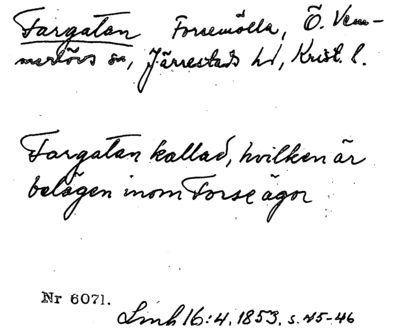 Fargatan Forsemölla, Ö. Vem-
merlövs sn, Järrestads hd, Krist. l.
Fargatan kallad, hvilken är
belägen inom Forse ägor
Nr 6071.
Linh 16:4, 1853, s. 45-46